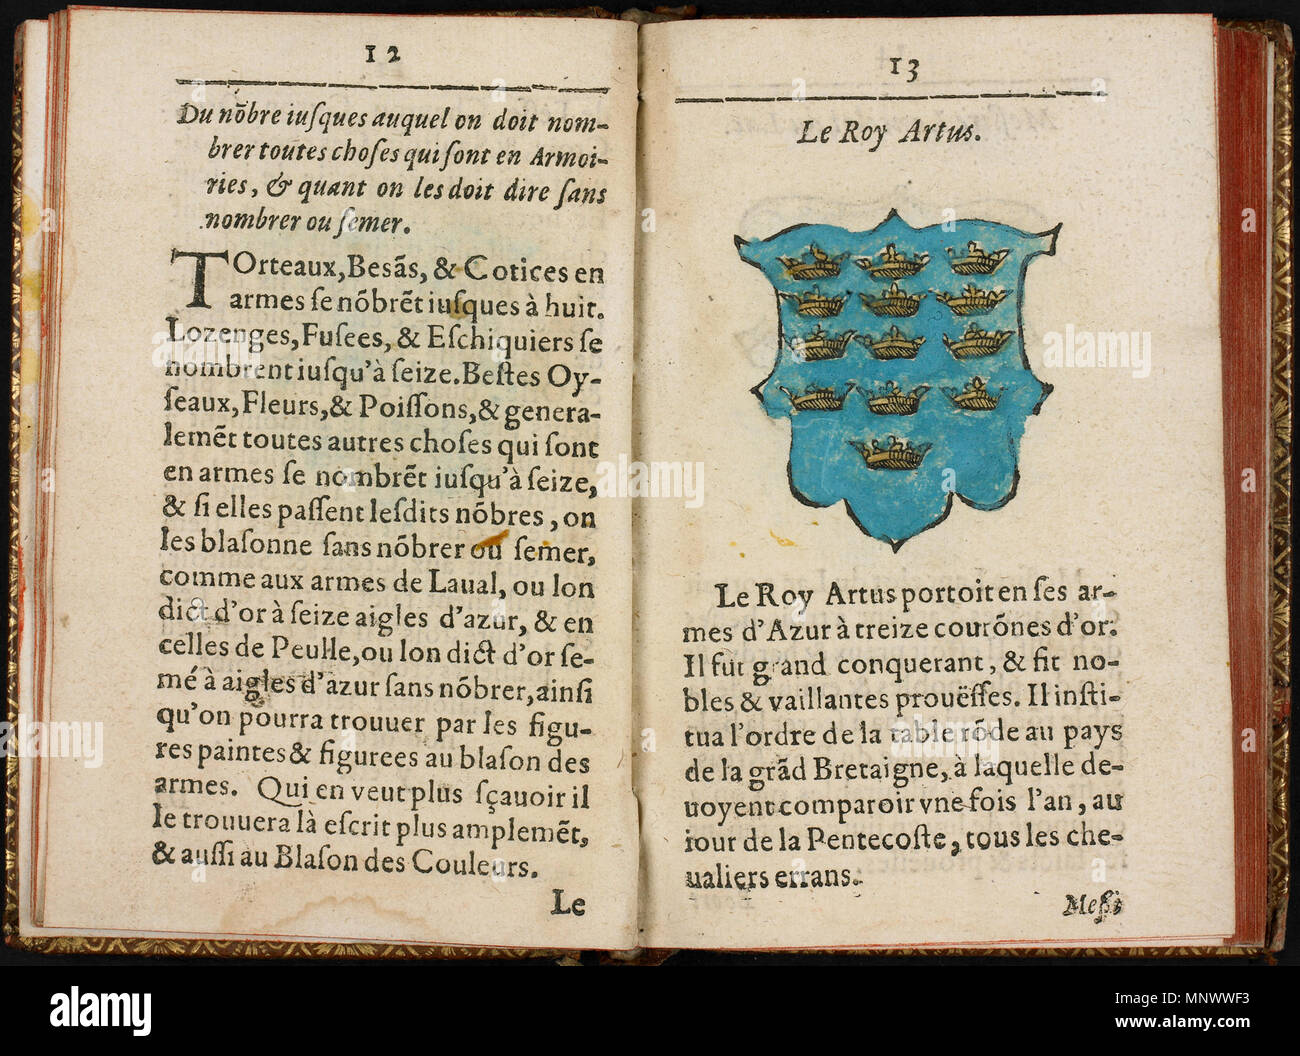 12
Du nõbre iuſques auquel on doit nom-
brer toutes choſes qui ſont en Armoi-
ries, & quant on les doit dire ſans
nombrer ou ſemer.
TOrteaux, Beſãs, & Cotices en
armes ſe nõbrẽt iuſques à huit.
Lozenges, Fuſees, & Eſchiquiers ſe
nombrent iuſqu'à ſeize. Beſtes Oy-
ſeaux, Fleurs, & Poiſſons, & genera-
lemẽt toutes autres choſes qui ſont
en armes ſe nombrẽt iuſqu'à ſeize,
& ſi elles paſſent leſdits nõbres, on
les blaſonne ſans nõbrer ou ſemer,
comme aux armes de Laual, ou lon
dict d'or à ſeize aigles d'azur, & en
celles de Peulle, ou lon dict d'or ſe-
mé à aigles d'azur ſans nõbrer, ainſi
qu'on pourra trouuer par les figu-
res paintes & figurees au blaſon des
armes. Qui en veut plus ſçauoir il
le trouuera là eſcrit plus amplemẽt,
& auſſi au Blaſon des Couleurs.
Le
13
Le Roy Artus.
Le Roy Artus portoit en ſes ar-
mes d'Azur à treize courõnes d'or.
Il fut grand conquerant, & fit no-
bles & vaillantes prouëſſes. Il inſti-
tua l'ordre de la table rõde au pays
de la grãd Bretaigne, à laquelle de-
uoyent comparoir vne fois l'an, au
iour de la Pentecoſte, tous les che-
ualiers errans.
Meſſi
alamy
Image ID: MNWWF3
www.alamy.com